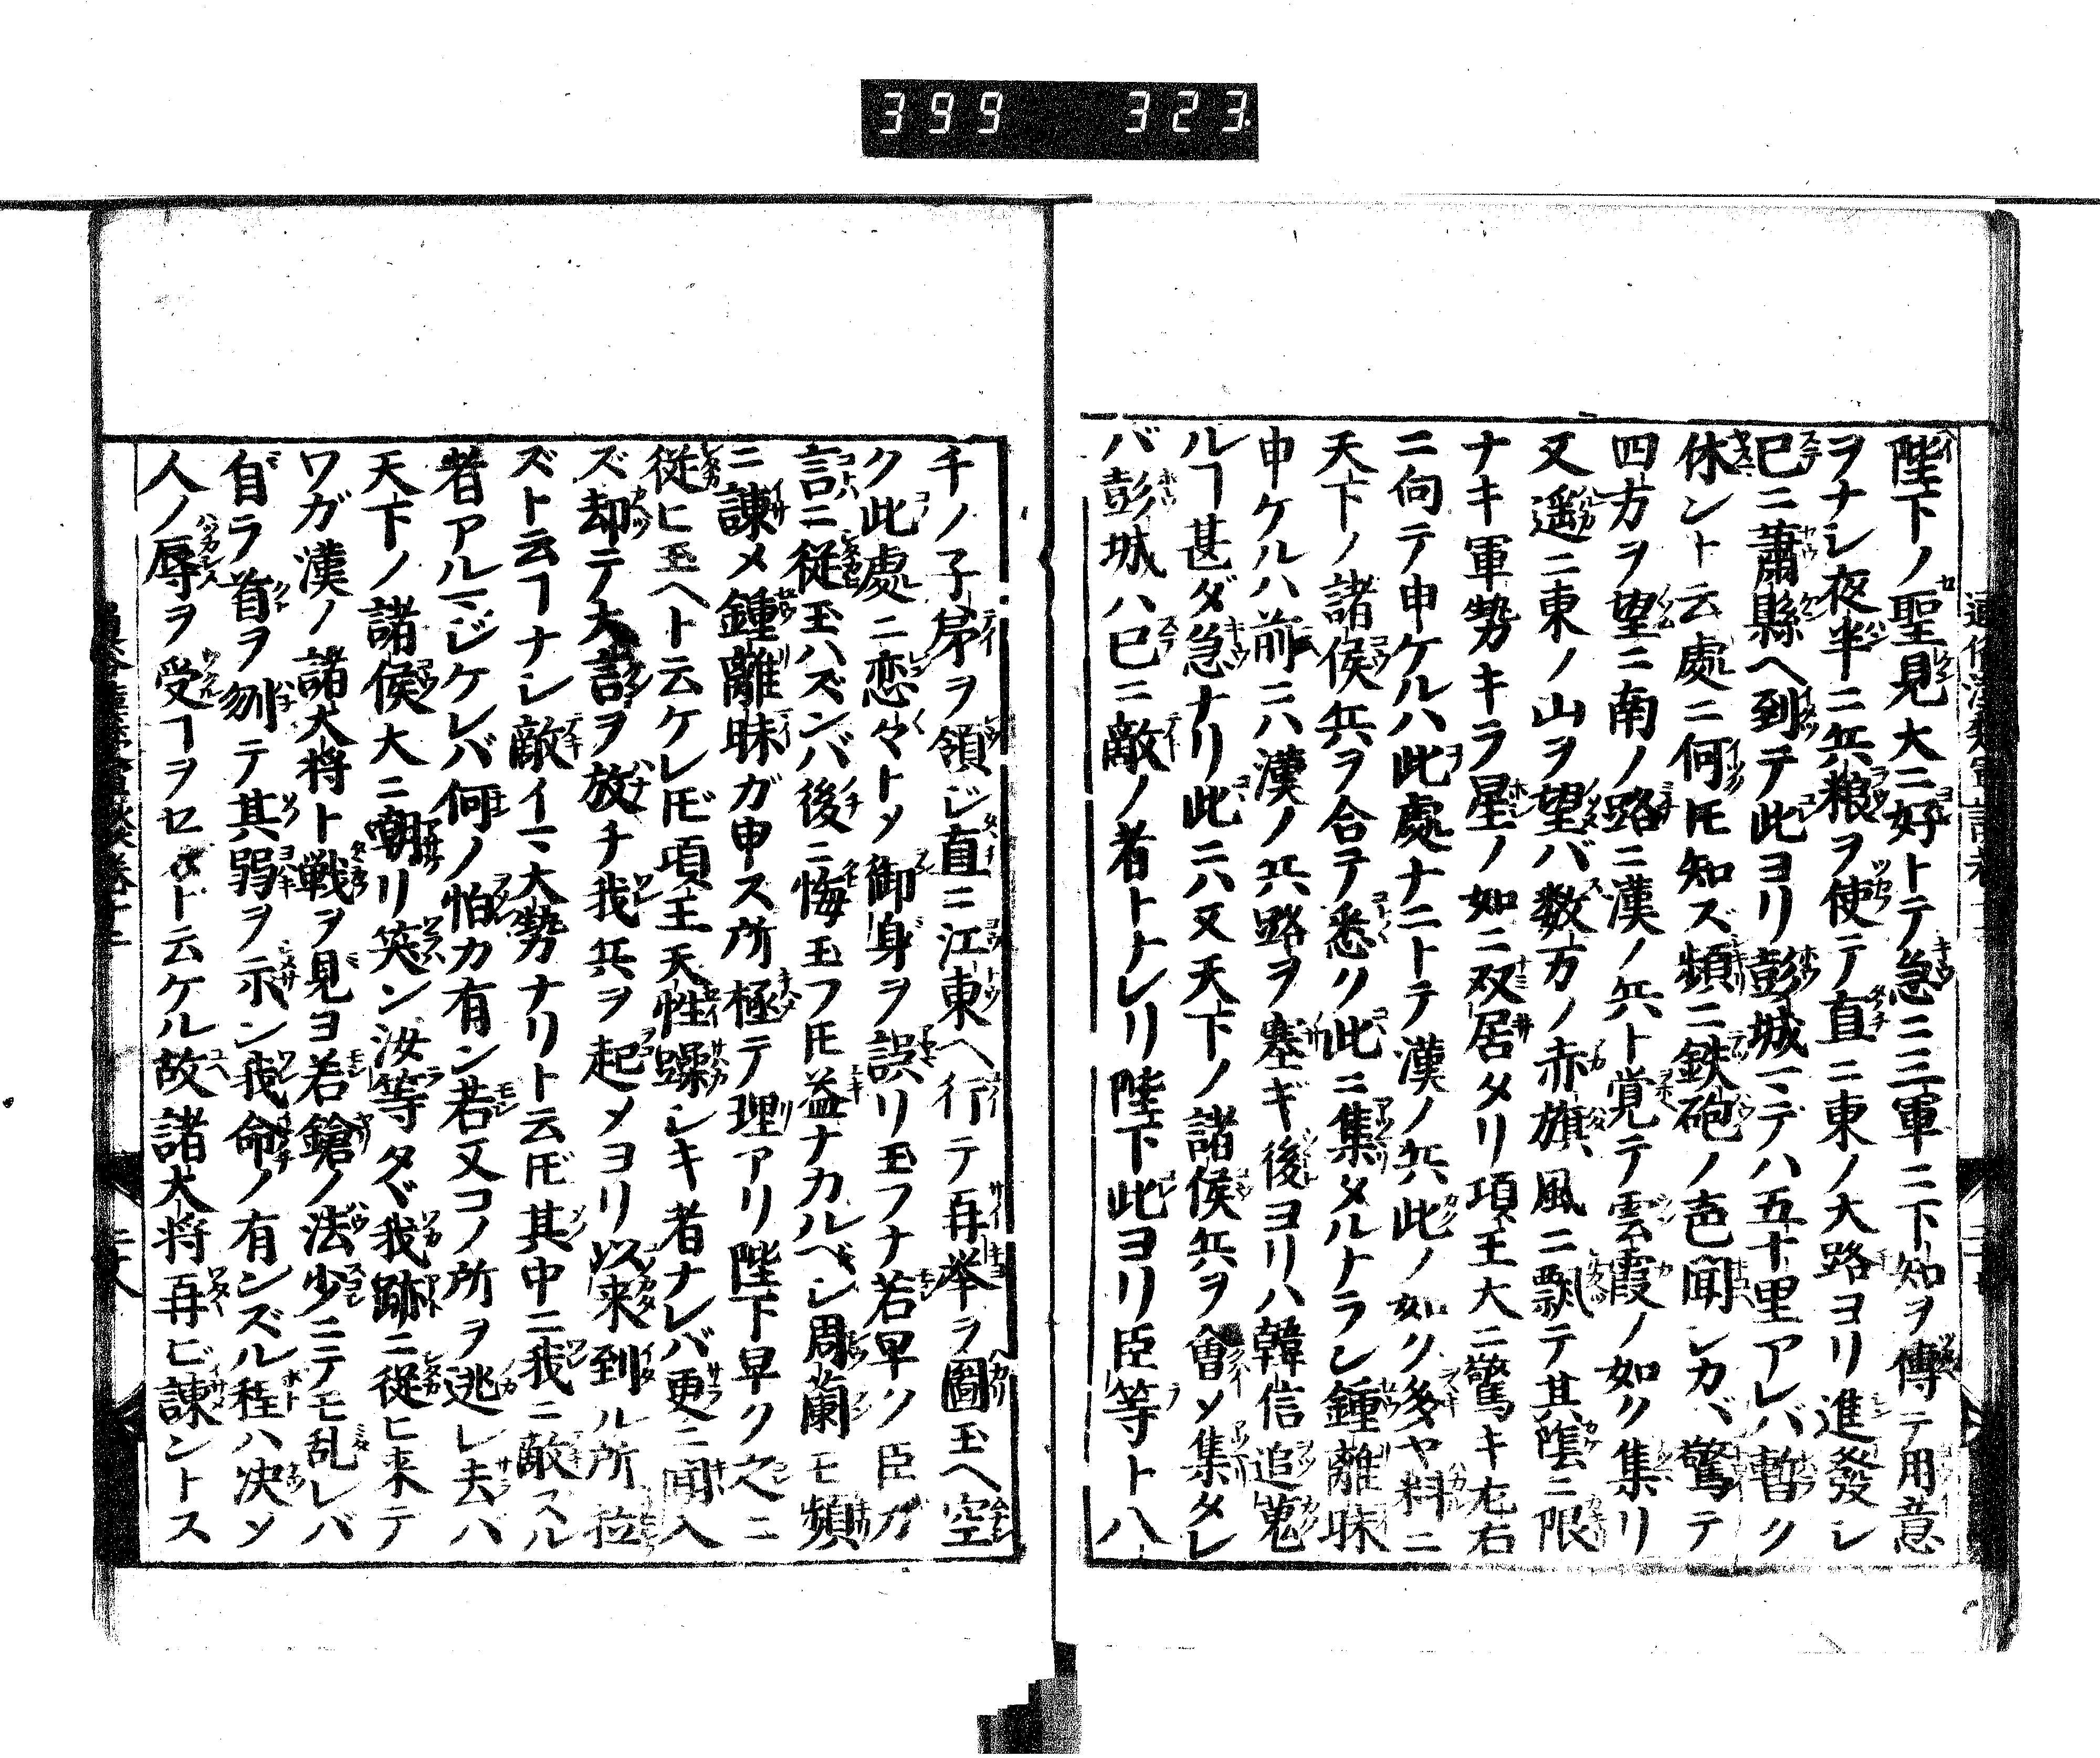 399 323.
陛下ノ聖見大ニ好トテ急ニ三軍ニ下知ヲ傳テ用意
ヲナシ夜半ニ兵粮ヲ使テ直ニ東ノ大路ヨリ進發シ
巳ニ蕭縣ヘ到テ此ヨリ彭城マデハ五十里アレバ暫ク
休ント云處ニ何𪜈知ズ頻ニ鉄砲ノ声聞シカバ驚テ
四方ヲ望ニ南ノ路ニ漢ノ兵ト覚テ雲霞ノ如ク集リ
又遥ニ東ノ山ヲ望バ数万ノ赤旗風ニ飄テ其陰ニ限
ナキ軍勢キラ星ノ如ニ双居タリ項王大ニ驚キ左右
ニ向テ申ケルハ此處ナニトテ漢ノ兵此ノ如ク多ヤ料ニ
天下ノ諸侯兵ヲ合テ悉ク此ニ集タルナラン鍾離昧
申ケルハ前ニハ漢ノ兵路ヲ塞ギ後ヨリハ韓信追蒐
ルヿ甚ダ急ナリ此ニハ又天下ノ諸侯兵ヲ會メ集タレ
バ彭城ハ巳ニ敵ノ者トナレリ陛下此ヨリ臣等ト八
千ノ子弟ヲ領ジ直ニ江東ヘ行テ再挙ヲ圖玉ヘ空
ク此處ニ恋々トメ御身ヲ誤リ玉フナ若早ク臣ガ
言ニ従玉ハズンバ後ニ悔玉フ𪜈益ナカルベシ周蘭モ頻
ニ諌メ鍾離昧ガ申ス所極テ理アリ陛下早ク之ニ
従ヒ玉ヘト云ケレ𪜈項王天性躁シキ者ナレバ更ニ聞入
ズ却テ大言ヲ放チ我兵ヲ起メヨリ以来到ル所位
ズト云ヿナシ敵イマ大勢ナリト云𪜈其中ニ我ニ敵スル
者アルマジケレバ何ノ怕カ有ン若又コノ所ヲ逃レ去バ
天下ノ諸侯大ニ嘲リ笑ン汝等タダ我跡ニ従ヒ来テ
ワガ漢ノ諸大将ト戦ヲ見ヨ若鎗ノ法少ニテモ乱レバ
自ラ首ヲ刎テ其弱ヲ示ン我命ノ有ンズル程ハ决メ
人ノ辱ヲ受ヿヲセジト云ケル故諸大将再ビ諌ントス